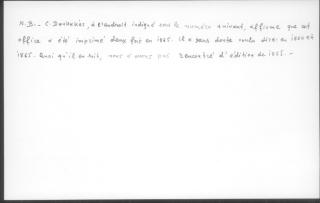 N.B. - C. à l'endroit indiqué sous le numéro suivant, affirme que cet
office a été imprimé deux fois en 1865. Il a sans doute voulu dire: en 1864 et
1865. Quoi qu'il en soit, nous n'avons pas rencontré d'édition de 1855. -